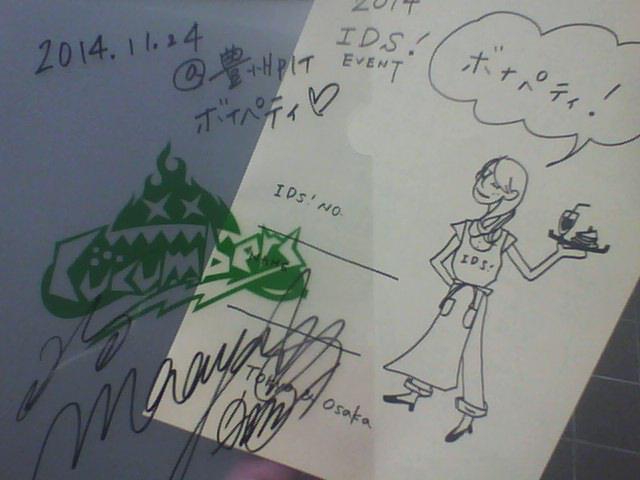 2014.11.24
@豊洲PIT
ボナペティ♡
2014
IDS!
EVENT
ボナペティ!
IDS! NO.
NAME
IDS!
CUCUMBERS
Tokyo & Osaka